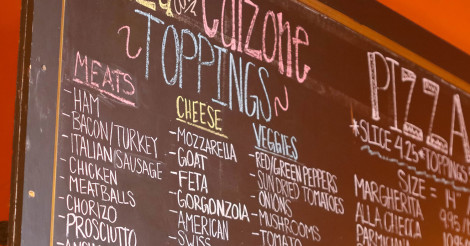 Calzone
TOPPINGS
MEATS
- HAM
- BACON/TURKEY
- ITALIAN SAUSAGE
- CHICKEN
- MEATBALLS
- CHORIZO
- PROSCIUTTO
CHEESE
- MOZZARELLA
- GOAT
- FETA
- GORGONZOLA
- AMERICAN
- SWISS
VEGGIES
- RED/GREEN PEPPERS
- SUNDRIED TOMATOES
- ONIONS
- MUSHROOMS
- TOMATO
PIZZA
*SLICE 4.25 + TOPPINGS
SIZE = 14"
MARGHERITA 9.95
ALLA CHECCA
PARMA